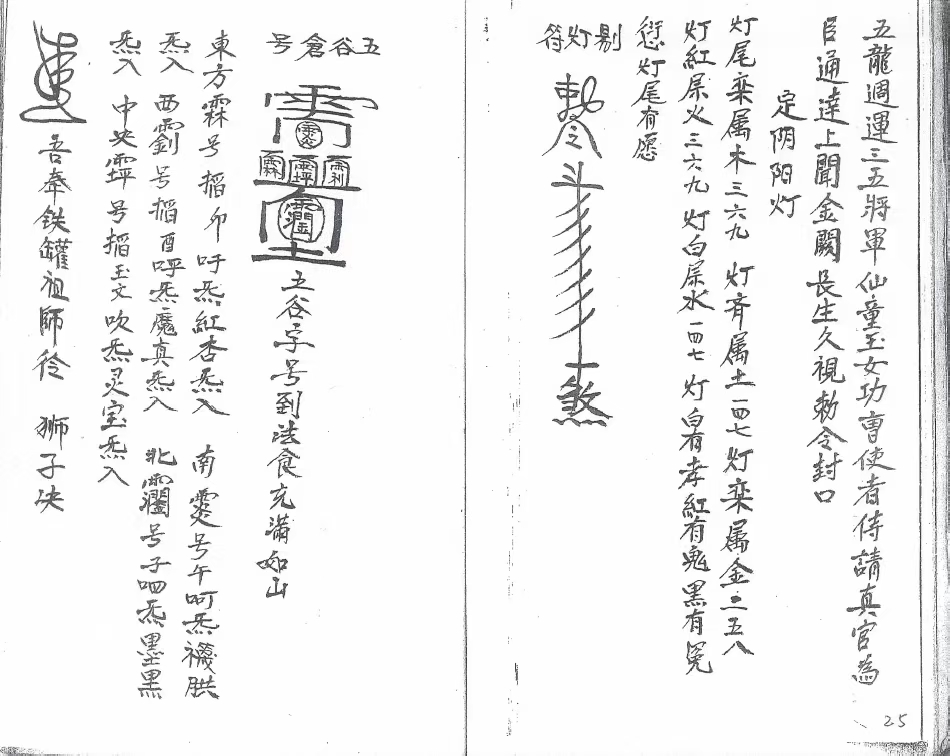 五龍週運三五將軍仙童玉女功曹使者侍請真官為
臣通達上聞金闕長生久視勅令封口
定阴阳灯
灯尾栾属木三六九 灯斉属土一四七灯栾属金二五八
灯紅屎火三六九 灯白屎水一四七 灯白有孝紅有鬼黑有冤
愆灯尾有愿
剔灯符
勅令斗
煞
25
五谷倉号
五谷字号到法食充满如山
東方霖号搯卯吁炁紅杏炁入 南霙号午呵炁
炁入 西霌号搯酉呼炁魔真炁入 北号子呬炁墨黑
炁入 中央霔号搯玉文吹炁灵宝炁入
吾奉铁罐祖師符 狮子决